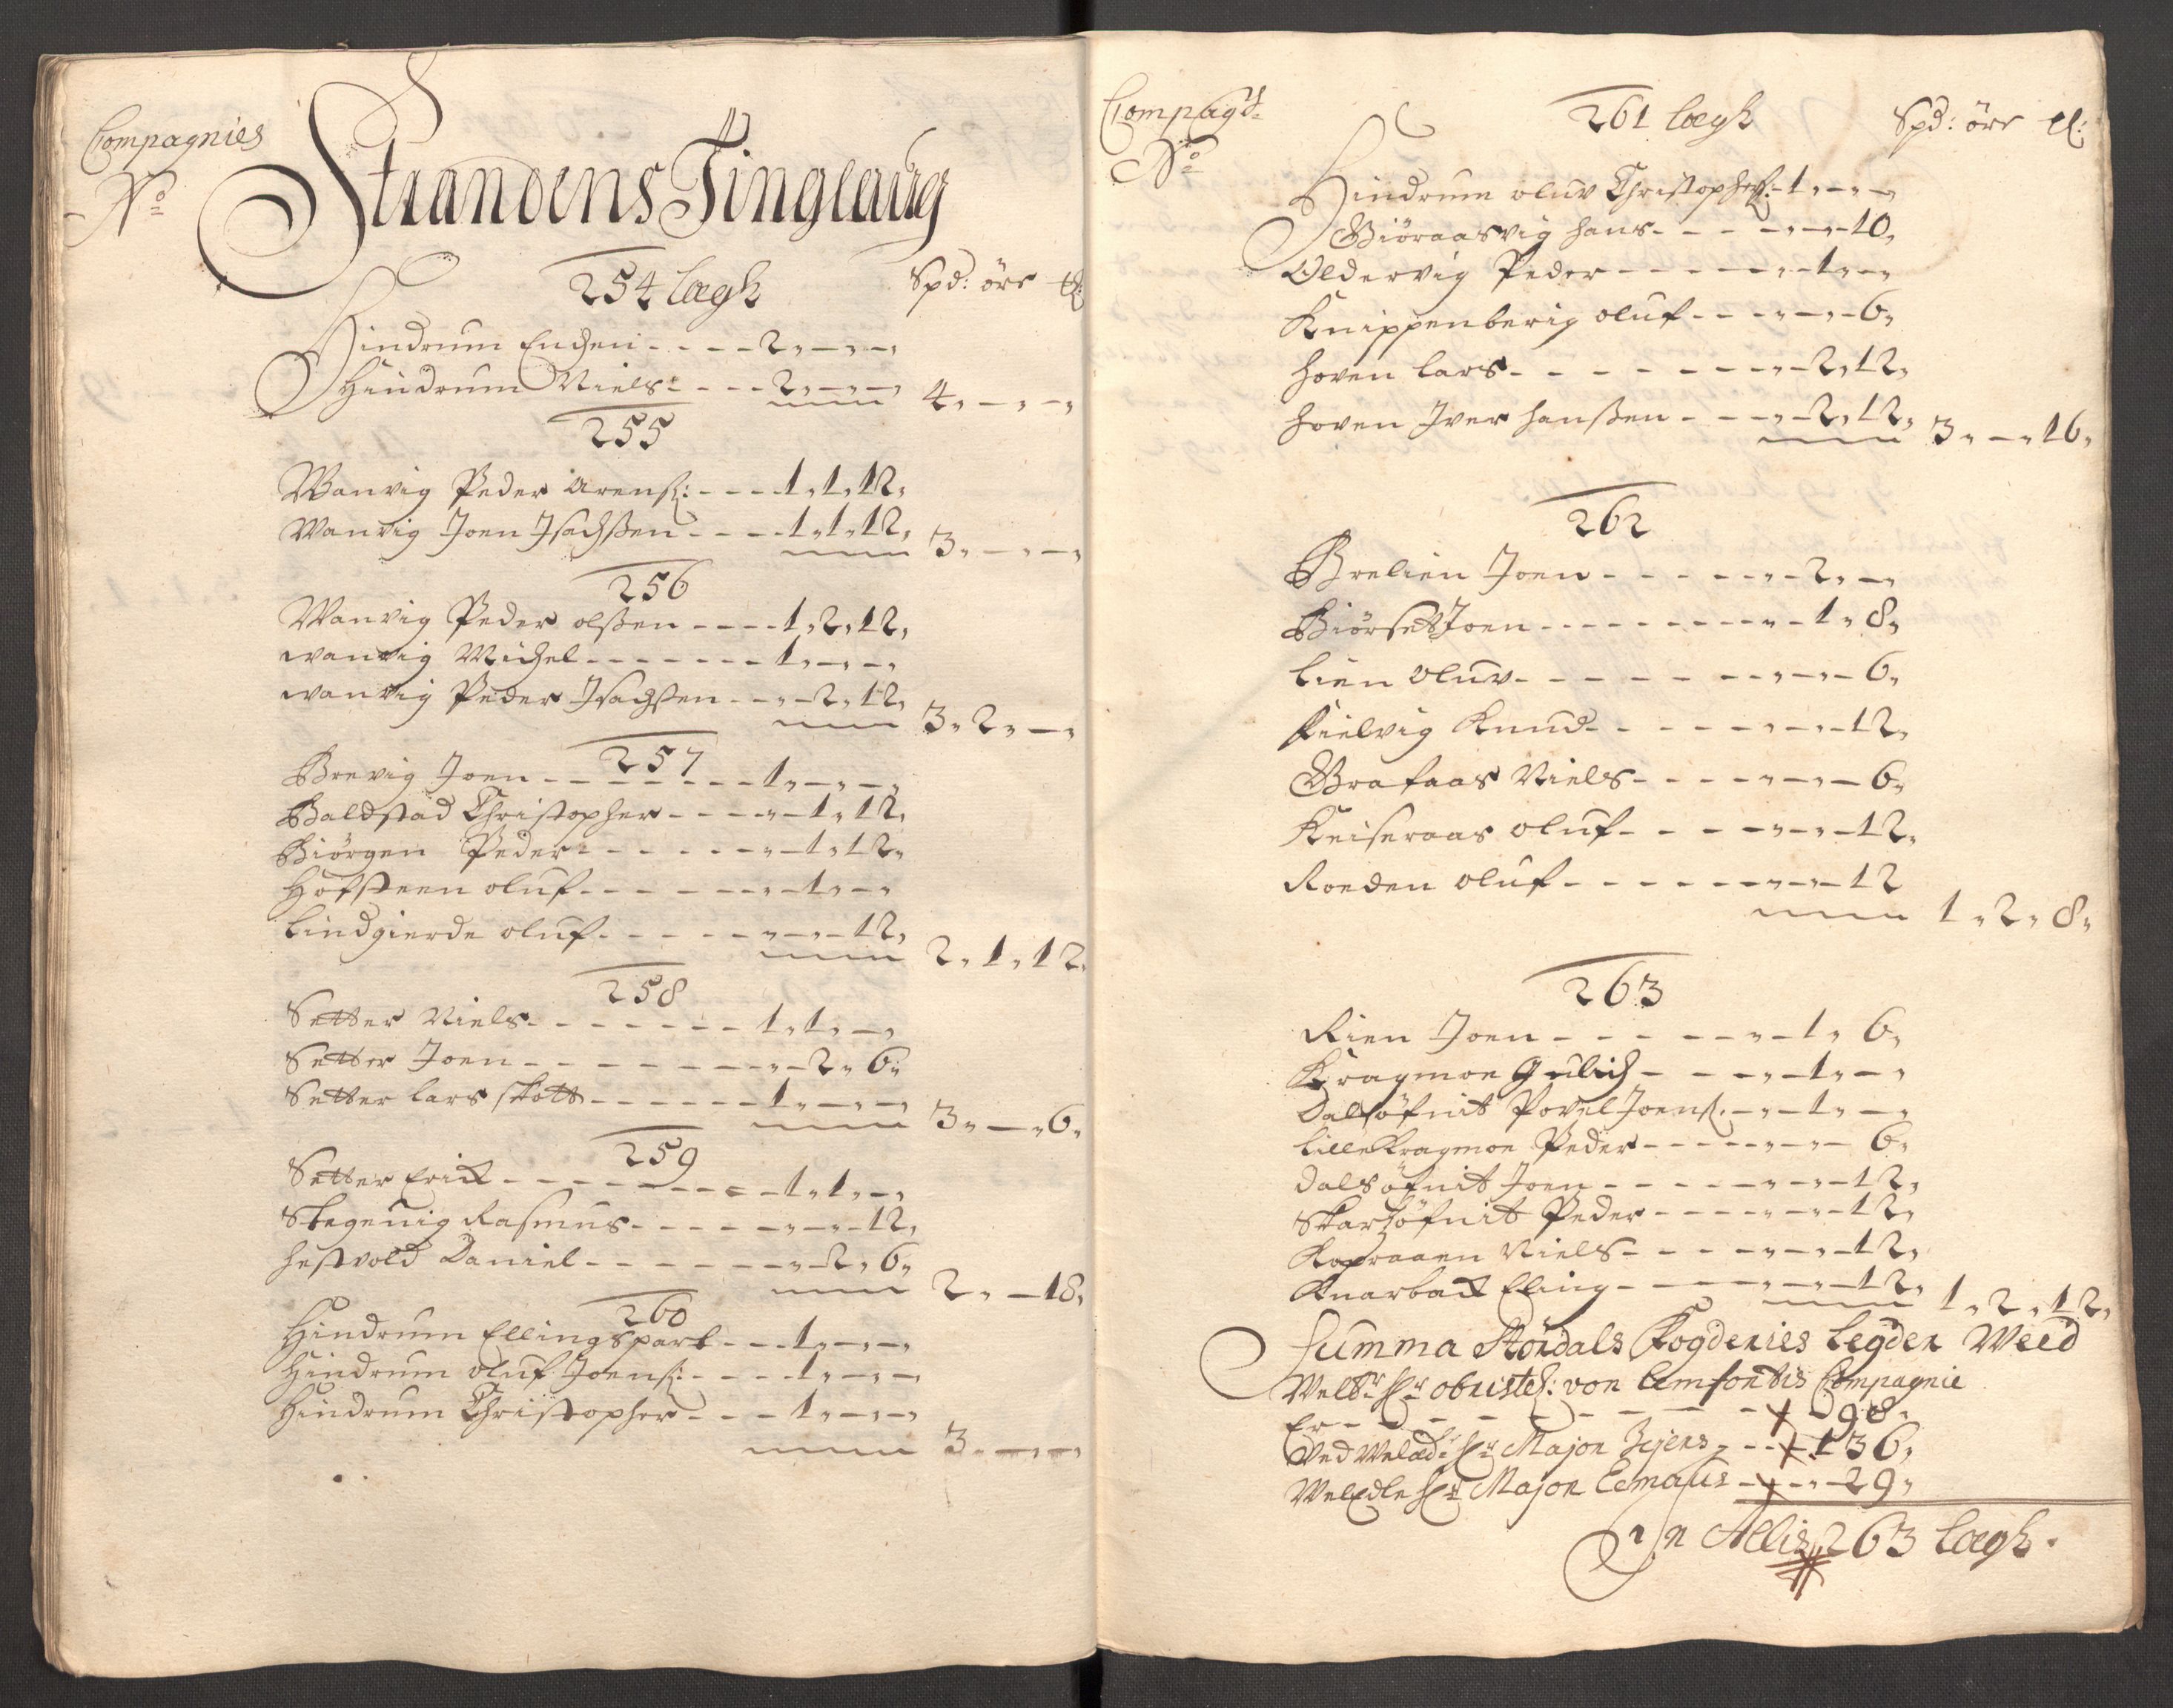 Compagnies
No
Strandens Tinglaug
254 lægh Spd: öre
Hindrum Enchen - - - - 2 „ — „ — „
Hindrum Niels - - - - 2 „ — „ — „ 4 „ — „ — „
255
Wanvig Peder Arens: - - - 1 „ 1 „ 12 „
Wanvig Joen Isachsen - - - 1 „ 1 „ 12 „ 3 „ — „ — „
256
Wanvig Peder olsen - - - - 1 „ 2 „ 12 „
wanvig Michel - - - - - - - 1 „ — „ — „
wanvig Peder Isachsen - - „ - 2 „ 12 „ 3 „ 2 „ — „
257
Brevig Joen - - - - - - - 1 „ — „ — „
Baldstad Christopher - - - - „ - 1 „ 12 „
Biörgen Peder - - - - - - „ - 1 „ 12 „
Hofsteen oluf - - - - - - „ - 1 „ — „
Lindgierde oluf - - - - - „ — „ - 12 „ 2 „ 1 „ 12 „
258
Setter Niels - - - - - - - 1 „ 1 „ — „
Setter Joen - - - - - - - „ - 2 „ 6 „
Setter lars skott - - - - - - 1 „ — „ — „ 3 „ — „ 6 „
259
Setter Erich - - - - - - - - 1 „ 1 „ — „
Skegenig Rasmus - - - - - „ — „ - 12 „
hestvold Daniel - - - - - - „ - 2 „ 6 „ 2 „ — 18 „
260
Hindrum Ellingspark - - - 1 „ — „ — „
Hindrum oluf Joens: - - - - 1 „ — „ — „
Hindrum Christopher - - - 1 „ — „ — „ 3 „ — „ — „
Compag:
No
261 lægh Spd: öre
Hindrum oluv Christophers: - 1 „ — „ —
Giöraasvig hans - - - - „ — „ - 10 „
Oldervig Peder - - - - - „ - 1 „ — „
Knippenberig oluf - - - „ — „ - 6 „
hoven lars - - - - - - - „ - 2 „ 12 „
hoven Iver hansen - - - „ - 2 „ 12 „ 3 „ — „ 16 „
262
Brelien Joen - - - - - „ - 2 „ — „
Biörset Joen - - - - - - - „ - 1 „ 8 „
Lien oluv - - - - - - - „ — „ - 6 „
Kielvig Knud - - - - - „ — „ - 12 „
Grafaas Niels - - - - „ — „ - 6 „
Keiseraas oluf - - - - „ — „ - 12 „
Roeden oluf - - - - - - „ — „ - 12 1 „ 2 „ 8 „
263
Rien Joen - - - - - „ - 1 „ 6 „
Kragmoe Gulich - - - - „ - 1 „ — „
Dalsöfnit Povel Joens: - „ - 1 „ — „
Lille Kragmoe Peder - - - - „ — „ - 6 „
Dalsöfnit Joen - - - - - „ — „ - 12 „
Skarsöfnit Peder - - - - „ — „ - 12 „
Kopraaen Niels - - - - „ — „ - 12 „
Knarbach Eling - - - - „ — „ - 12 „ 1 „ 2 „ 12 „
Summa Stördals Fogderies Legder Weed
Welbr: Hr: obriste: von Compagnie
Er - - - - - - - - - 98 „
Ved Welæd: Hr: Major - - 136 „
WelEdle Hr: Major Ecmaus - - „ - 29 „
In Alles 263 Lægh.